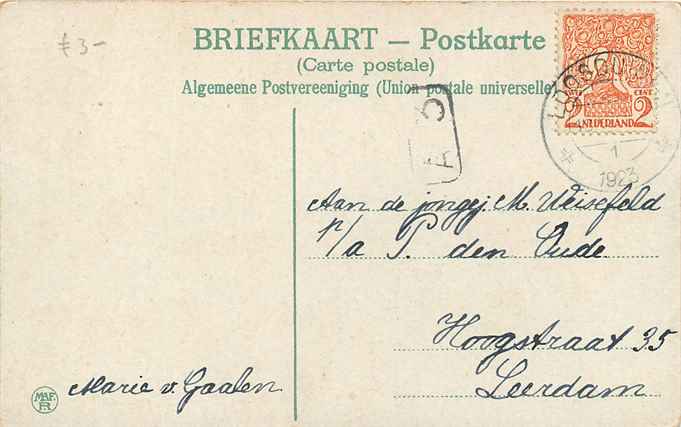 £3-
BRIEFKAART — Postkarte
(Carte postale)
Algemeene Postvereeniging (Union postale universelle)
CENT
2 2
NEDERLAND
1
1923
A C
Aan de jongej. M. Weisefeld
p/a P. den Oude
Hoogstraat 35
Leerdam
Marie v. Gaalen